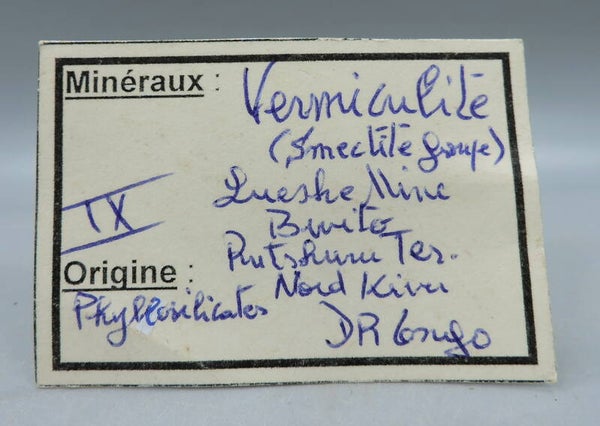 Minéraux : Vermiculite
(Smectite group)
Lueshe Mine
IX
Bwito
Rutshuru Ter.
Origine : Nord Kivu
Phyllosilicates
DR Congo